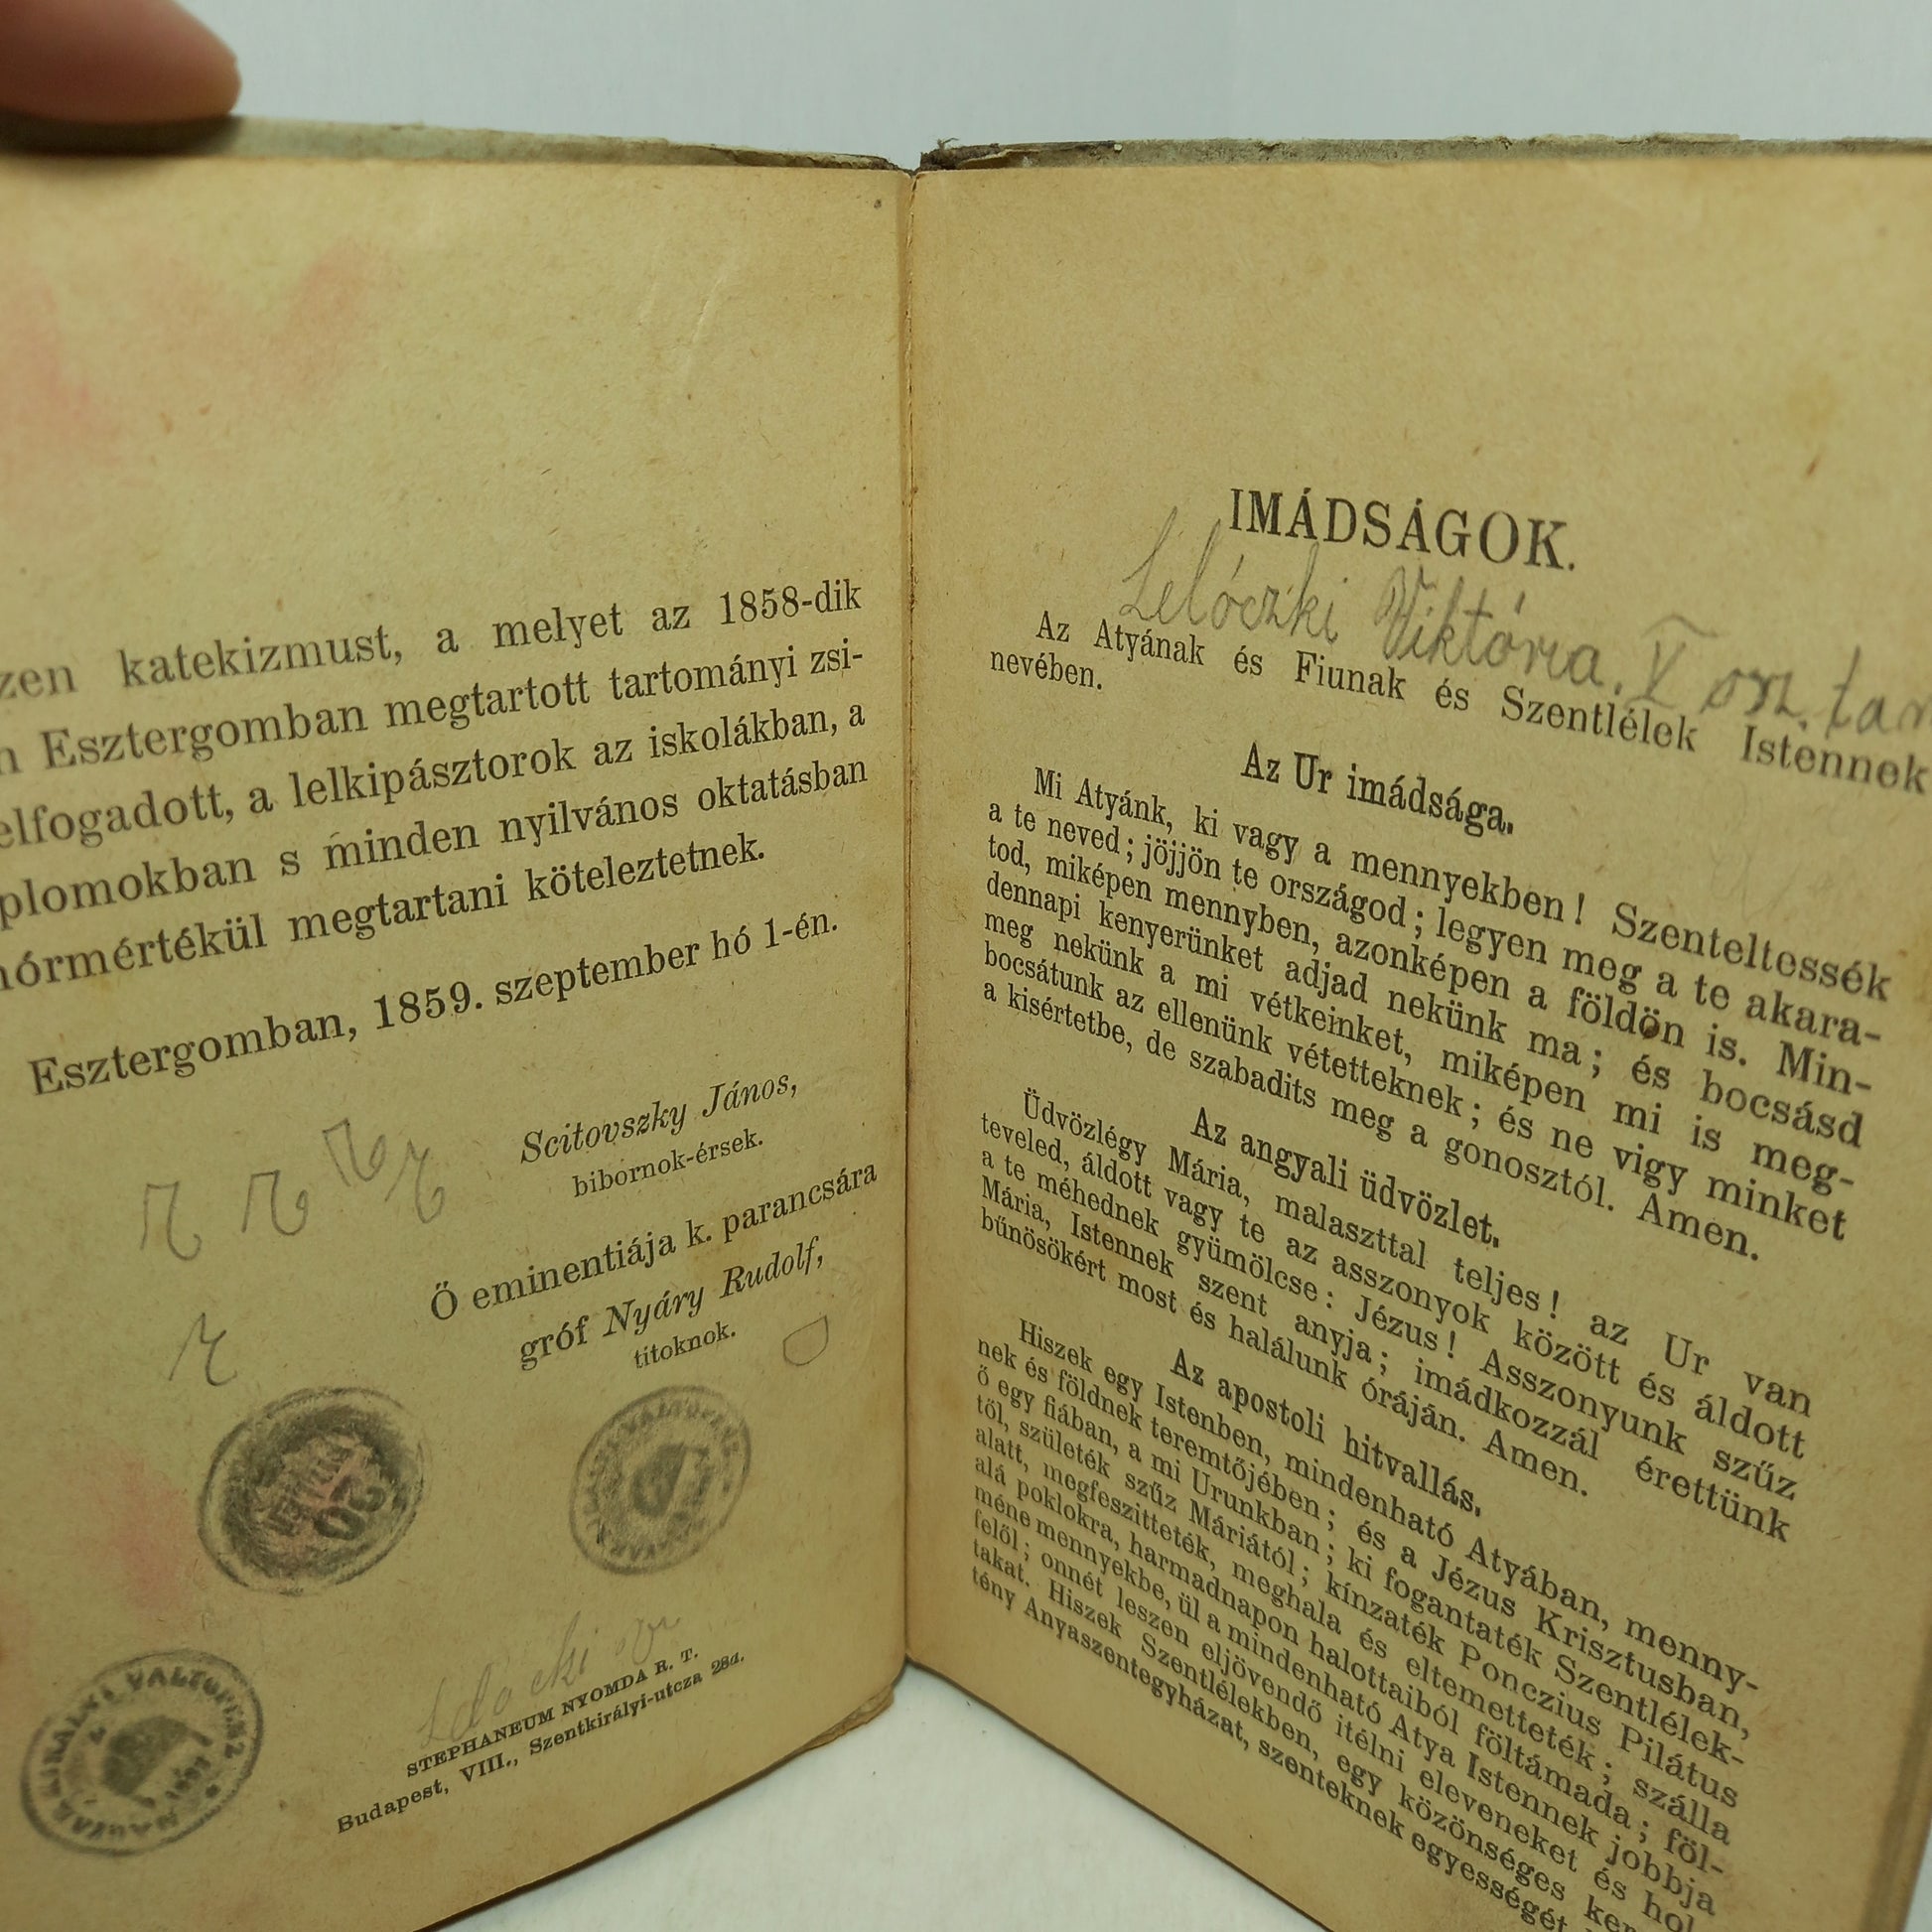 katekizmust, a melyet az 1858-dik
Esztergomban megtartott tartományi zsi-
elfogadott, a lelkipásztorok az iskolákban, a
plomokban s minden nyilvános oktatásban
megtartani köteleztetnek.
Esztergomban, 1859. szeptember hó 1-én.
Scitovszky János,
bibornok-érsek.
Ő eminentiája k. parancsára
gróf Nyáry Rudolf,
titoknok.
20
STEPHANEUM NYOMDA R. T.
Budapest, VIII., Szentkirályi-utcza 28a.
IMÁDSÁGOK.
Lelóczki Viktória. V osz. tan
Az Atyának és Fiunak és Szentlélek Istennek
nevében.
Az Ur imádsága.
Mi Atyánk, ki vagy a mennyekben! Szenteltessék
a te neved; jöjjön te országod; legyen meg a te akara-
tod, miképen mennyben, azonképen a földön is. Min-
dennapi kenyerünket adjad nekünk ma; és bocsásd
meg nekünk a mi vétkeinket, miképen mi is meg-
bocsátunk az ellenünk vétetteknek; és ne vigy minket
a kisértetbe, de szabadits meg a gonosztól. Amen.
Az angyali üdvözlet.
Üdvözlégy Mária, malaszttal teljes! az Ur van
teveled, áldott vagy te az asszonyok között és áldott
a te méhednek gyümölcse: Jézus! Asszonyunk szűz
Mária, Istennek szent anyja; imádkozzál érettünk
bűnösökért most és halálunk óráján. Amen.
Az apostoli hitvallás.
Hiszek egy Istenben, mindenható Atyában, menny-
nek és földnek teremtőjében; és a Jézus Krisztusban,
ő egy fiában, a mi Urunkban; ki fogantaték Szentlélek-
től, születék szűz Máriától; kínzaték Ponczius Pilátus
alatt, megfeszitteték, meghala és eltemetteték; szálla
alá poklokra, harmadnapon halottaiból föltámada; föl-
méne mennyekbe, ül a mindenható Atya Istennek jobbja
felől; onnét leszen eljövendő itélni eleveneket és hol
takat. Hiszek Szentlélekben, egy közönséges ker
tény Anyaszentegyházat, szenteknek egyességét